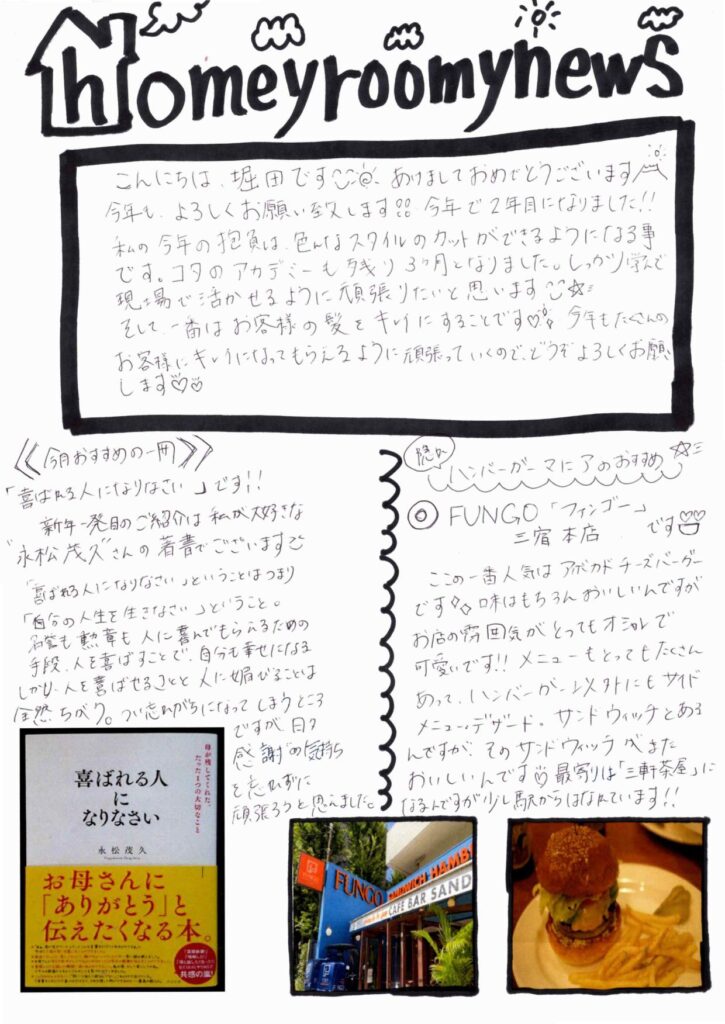 homeyroomynews
こんにちは、堀田です あけましておめでとうございます
今年も、よろしくお願い致します!! 今年で2年目になりました!!
私の今年の抱負は、色んなスタイルのカットができるようになる事
です。コタのアカデミーも残り3ヶ月となりました。しっかり学んで
現場で活かせるように頑張りたいと思います
そして、一番はお客様の髪をキレイにすることです♡ 今年もたくさんの
お客様にキレイになってもらえるように頑張っていくので、どうぞよろしくお願い
します♡
《今月おすすめの一冊》
「喜ばれる人になりなさい」です!!
新年一発目のご紹介は私が大好きな
"永松茂久"さんの著書でございます
「喜ばれる人になりなさい」ということはつまり
「自分の人生を生きなさい」ということ。
名誉も勲章も人に喜んでもらえるための
手段、人を喜ばすことで、自分も幸せになる
しかし、人を喜ばせることと人に媚びることは
全然ちがう。つい忘れがちになってしまうところ
ですが、日々
感謝の気持ち
を忘れずに
頑張ろうと思えました。
母が残してくれた、
たった1つの大切なこと
喜ばれる人
に
なりなさい
永松茂久
お母さんに
「ありがとう」と
伝えたくなる本。
共感の嵐!
ハンバーガーマニアのおすすめ
◎ FUNGO「ファンゴー」
三宿本店 です
ここの一番人気はアボカドチーズバーガー
です 味はもちろんおいしいんですが
お店の雰囲気がとってもオシャレで
可愛いです!! メニューもとってもたくさん
あって、ハンバーガー以外にもサイド
メニュー、デザート。サンドウィッチとある
んですが、そのサンドウィッチがまた
おいしいんです 最寄りは「三軒茶屋」に
なるんですが少し駅からはなれています!!
FUNGO SANDWICH HAMB
CAFE BAR SAND